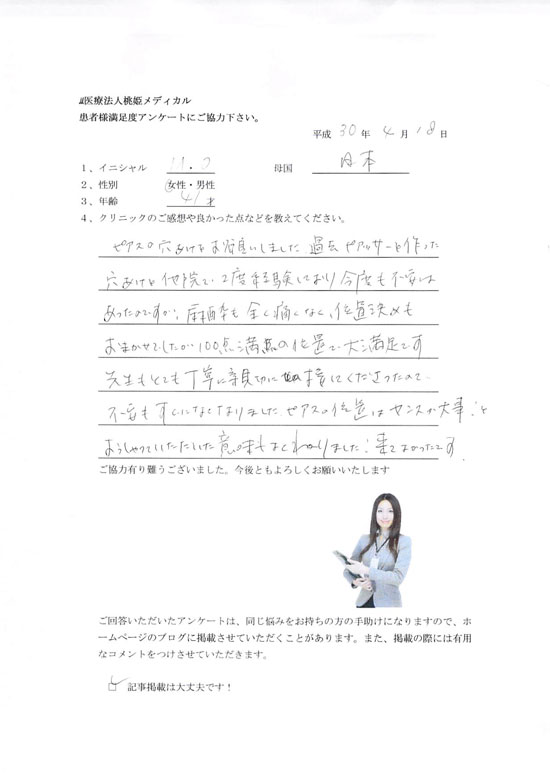 医療法人桃姫メディカル
患者様満足度アンケートにご協力下さい。
平成 30 年 4 月 18 日
1、イニシャル 母国 日本
2、性別 女性・男性
3、年齢 41 才
4、クリニックのご感想や良かった点などを教えてください。
ピアスの穴あけをお願いしました 過去 ピアッサーを作った
穴あけを他院で2度経験しており今度も不安は
あったのですが、麻酔も全く痛くなく、位置決めも
おまかせでしたが100点満点の位置で大満足です
先生もとても丁寧に親切に接してくださったので
不安もすぐになくなりました ピアスの位置はセンスが大事!と
おっしゃっていただいた意味もよくわかりました!来てよかったです
ご協力有り難うございました。今後ともよろしくお願いいたします
ご回答いただいたアンケートは、同じ悩みをお持ちの方の手助けになりますので、ホ
ームページのブログに掲載させていただくことがあります。また、掲載の際には有用
なコメントをつけさせていただきます。
記事掲載は大丈夫です！